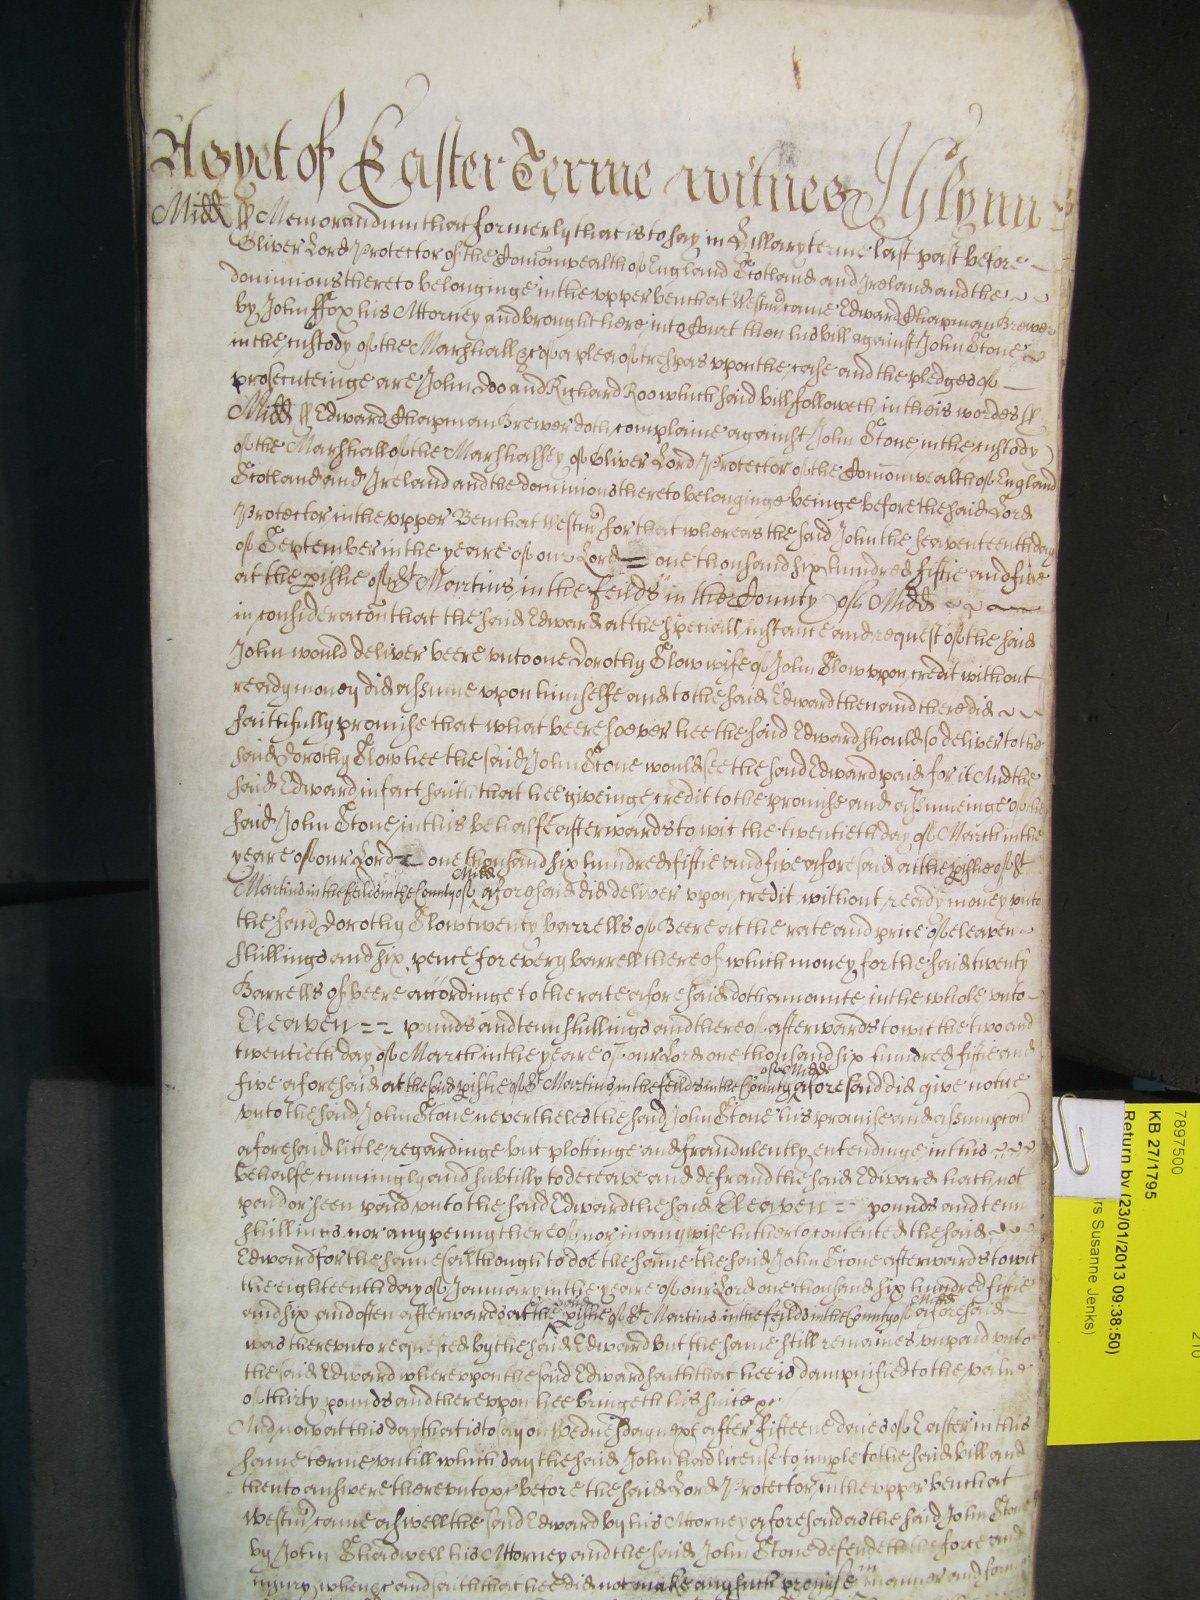 As yet of Easter Terme witnes J Glynn
Midd ss Memorandum that formerly that is to say in Hillary terme last past before
Oliver Lord Protector of the Comonwealth of England Scotland and Ireland and the
dominions thereto belonginge in the upper bench at Westmr came Edward Chapman Brewer
by John Fox his Attorney and brought here into Court then his bill against John Stone
in the custody of the Marshall &c of a plea of trespas upon the case and the pledges of
prosecuteinge are John Doo and Richard Roo which said bill followeth in theis wordes ss
Midd ss Edward Chapman Brewer doth complaine against John Stone in the custody
of the Marshall of the Marshalsey of Oliver Lord Protector of the Comonwealth of England
Scotland and Ireland and the dominions thereto belonginge beinge before the said Lord
Protector in the upper Bench at Westmr for that whereas the said John the seaventeenth day
of September in the yeare of our Lord = one thousand six hundred fiftie and five
at the pishe of St Martins in the feilds in the County of Midd
in consideracon that the said Edward at the speciall instance and request of the said
John would deliver beere unto one Dorothy Clow wife of John Clow upon credit without
ready money did assume upon himselfe and to the said Edward then and there did
faithfully promise that what beere soever hee the said Edward should so deliver to the
said Dorothy Clow hee the said John Stone would see the said Edward paid for it And the
said Edward in fact saith that hee giveinge credit to the promise and assumeinge of the
said John Stone in this behalfe afterwards to wit the twentieth day of March in the
yeare of our Lord one thousand six hundred fiftie and five aforesaid at the pishe of St
Martins in the feilds in the County of Midd aforesaid did deliver upon credit without ready money unto
the said Dorothy Clow twenty barrells of Beere at the rate and price of eleaven
shillings and six pence for every barrell thereof which money for the said twenty
Barrells of beere accordinge to the rate aforesaid doth amounte in the whole unto
Eleaven == pounds and tenn shillings and thereof afterwards to wit the two and
twentieth day of March in the yeare of our Lord one thousand six hundred fiftie and
five aforesaid at the said pishe of St Martins in the feilds in the County of Midd aforesaid did give notice
unto the said John Stone neverthelesse the said John Stone his promise and assumpcon
aforesaid little regardinge but plottinge and fraudulently entendinge in this
behalfe cunningly and subtilly to deceave and defraud the said Edward hath not
paid or seen paid unto the said Edward the said Eleaven == pounds and tenn
shillings nor any penny thereof nor in any wise hitherto contented the said
Edward for the same (although to doe the same the said John Stone afterwards to wit
the eighteenth day of January in the yeare of our Lord one thousand six hundred fiftie
and six and often afterwards at the said pishe of St Martins in the feilds in the County of Midd aforesaid
was thereunto requested by the said Edward but the same still remaines unpaid unto
the said Edward whereupon the said Edward saith that hee is dampnified to the value
of thirty pounds and thereupon hee bringeth his suite &c
And now at this day that is to say on Wednesday next after fifteene daies of Easter in this
same terme untill which day the said John had license to imple to the said bill and
then to answere thereunto &c before the said Lord Protector in the upper bench at
Westmr came aswell the said Edward by his Attorney aforesaid as the said John Stone
by John Shadwell his Attorney and the said John Stone defendeth the force and
injury when &c and saith that hee did not make any such promise in manner and form
7897500
KB 27/1795
Return by (23/01/2013 09:38:50)
rs Susanne Jenks)